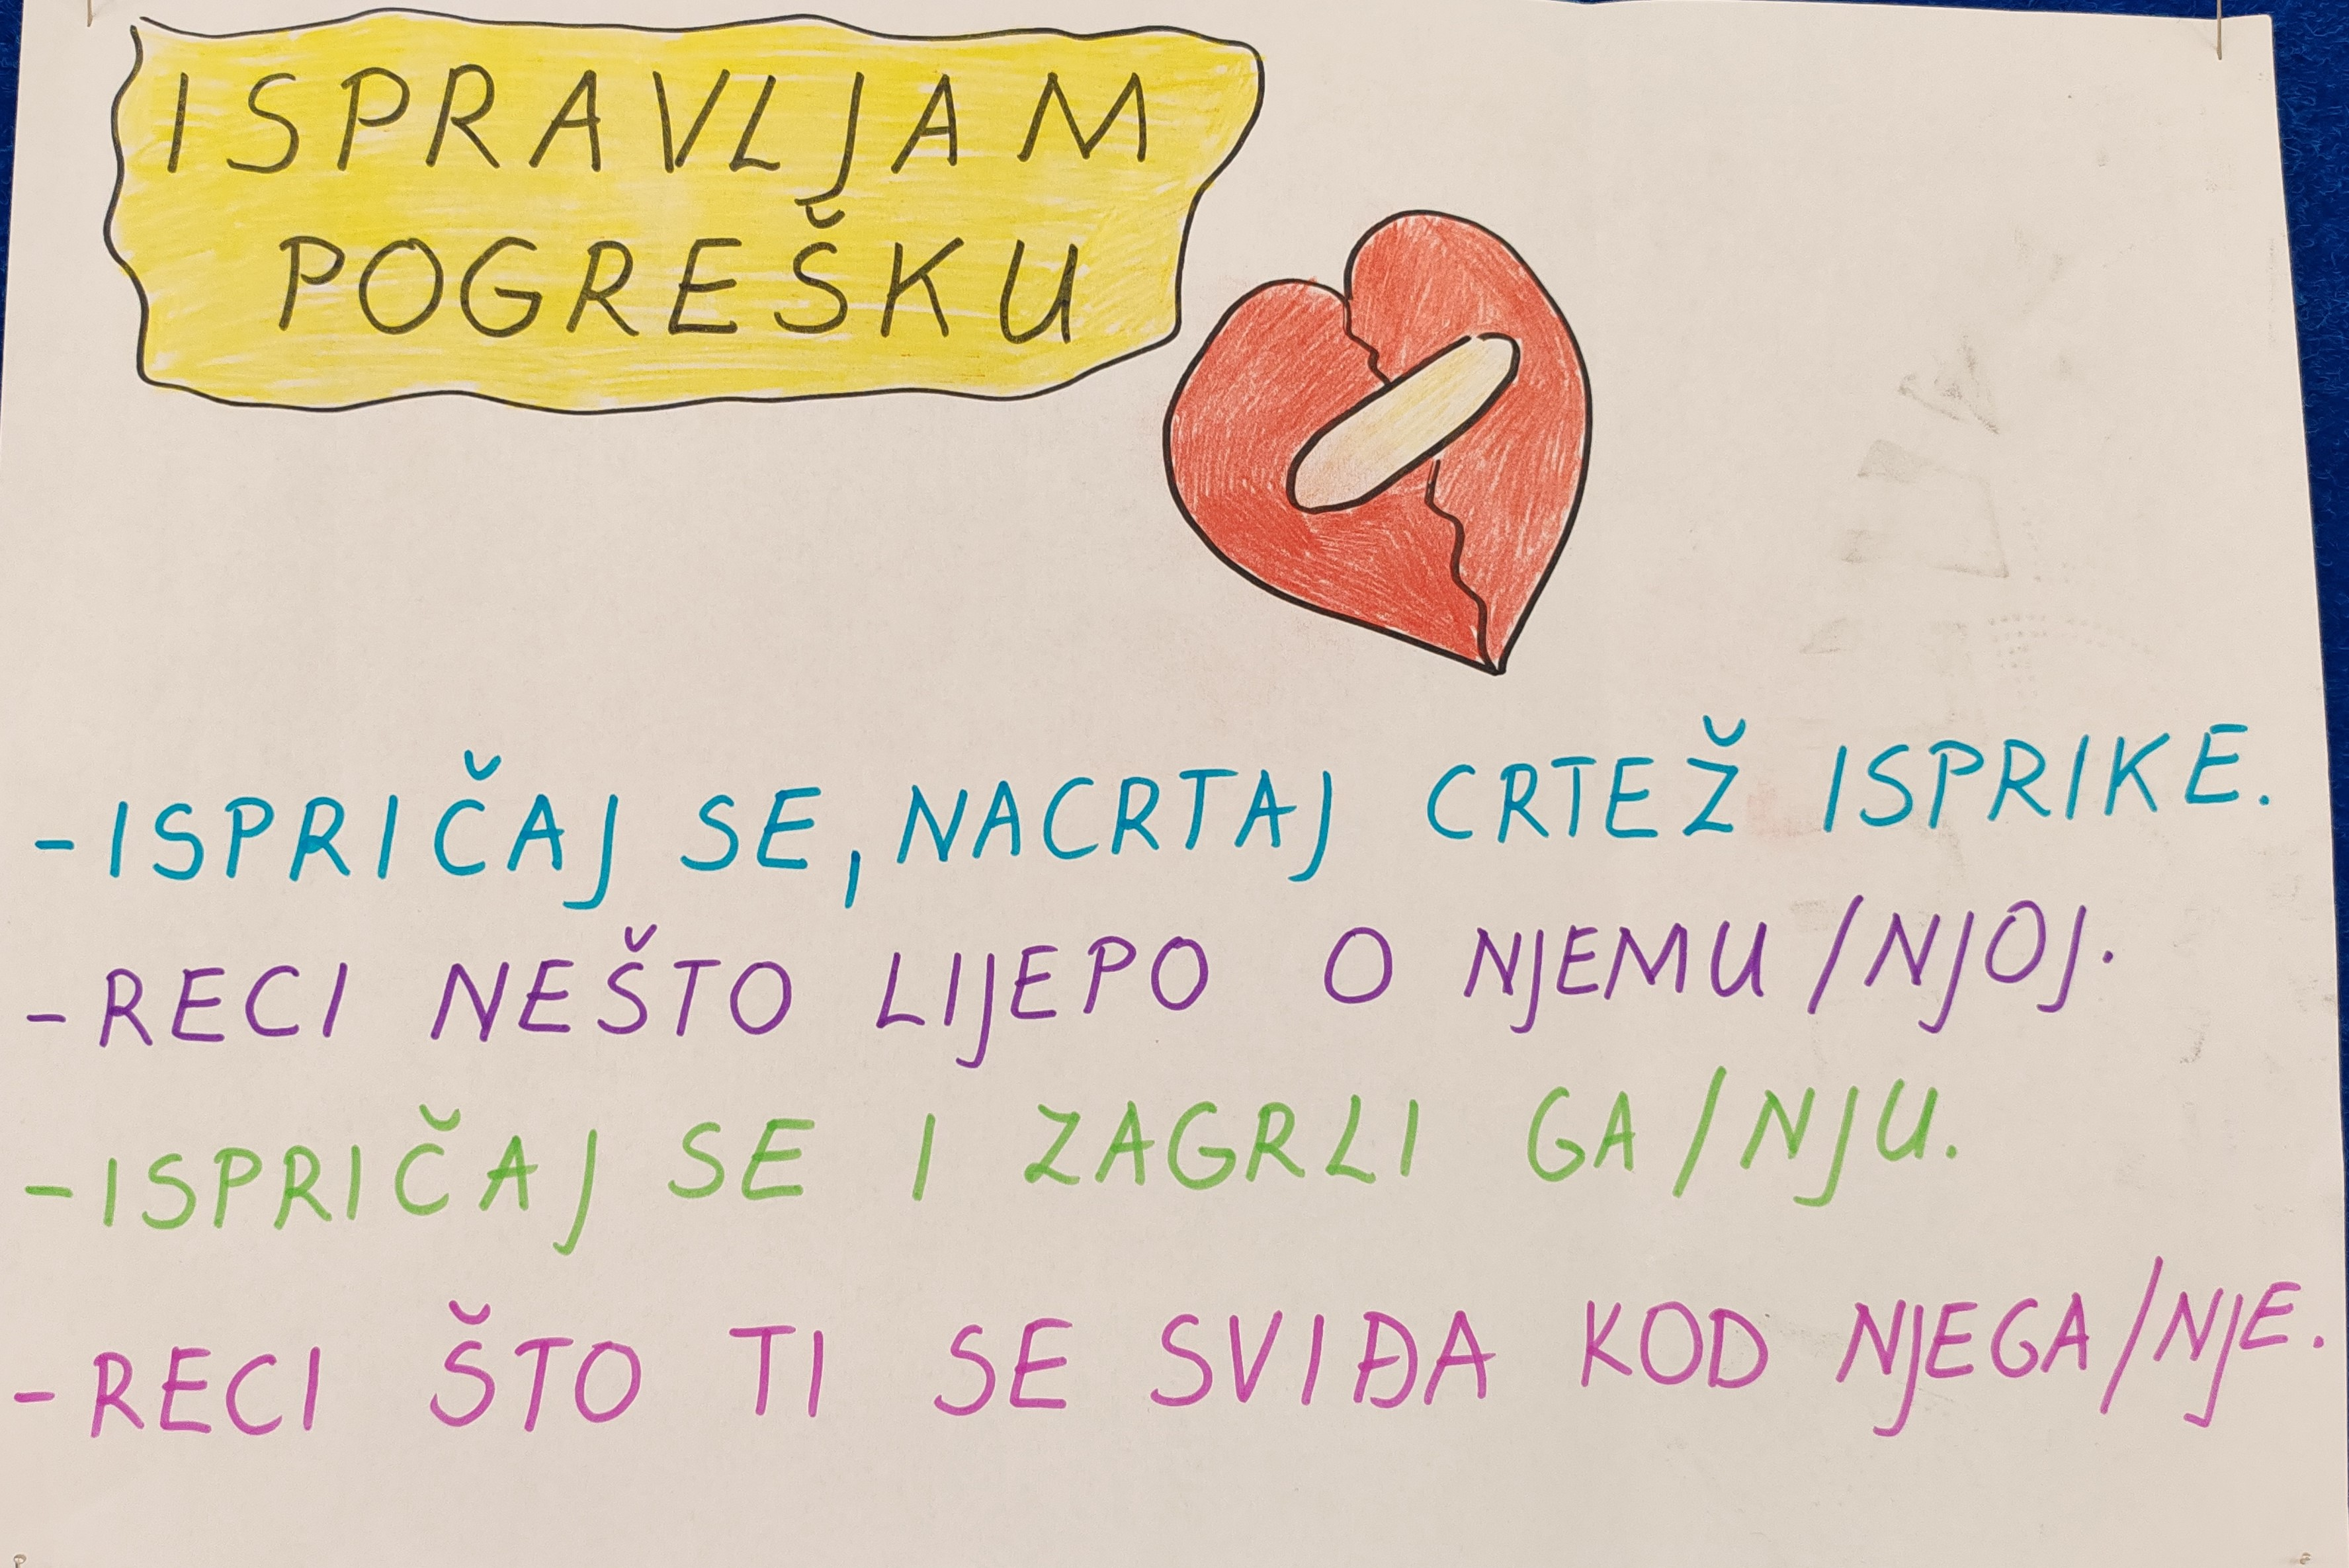 ISPRAVLJAM
POGREŠKU
-ISPRIČAJ SE, NACRTAJ CRTEŽ ISPRIKE.
-RECI NEŠTO LIJEPO O NJEMU/NJOJ.
-ISPRIČAJ SE I ZAGRLI GA/NJU.
-RECI ŠTO TI SE SVIĐA KOD NJEGA/NJE.